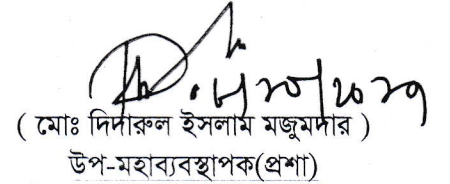 ( মোঃ দিদারুল ইসলাম মজুমদার )
উপ-মহাব্যবস্থাপক(প্রশা)